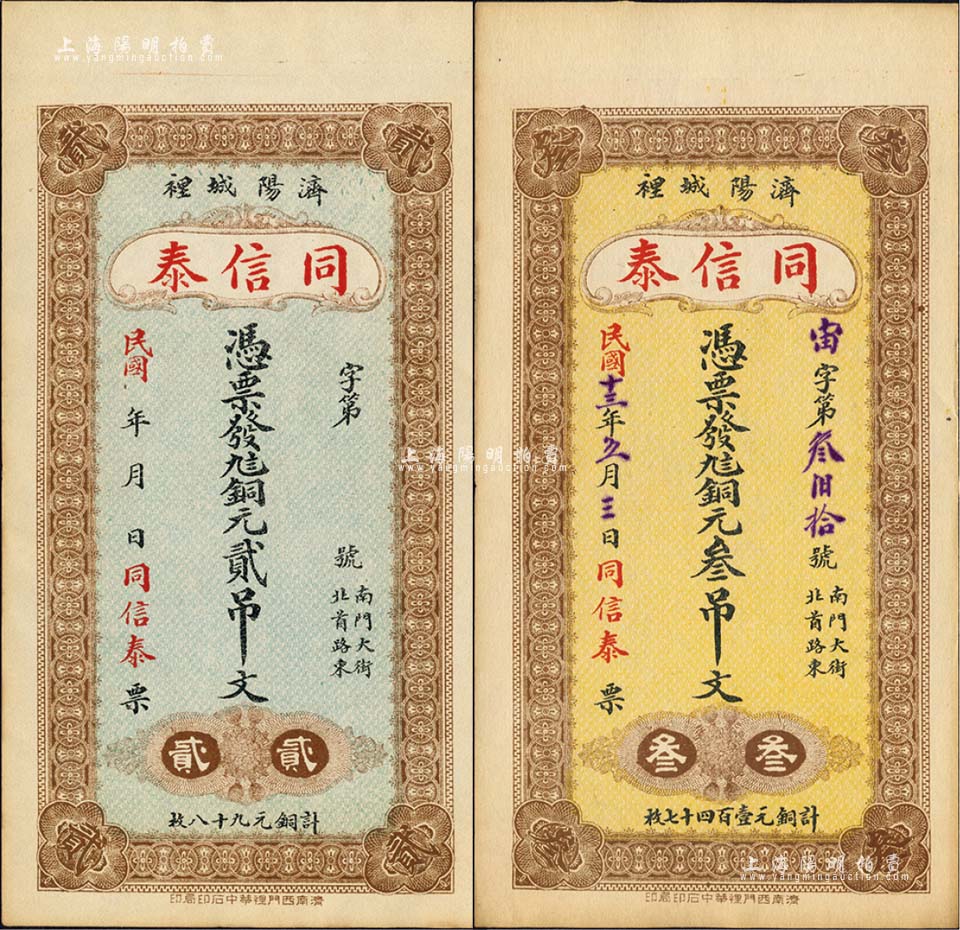 上海陽明拍賣
www.yangmingauction.com
貳
貳
濟陽城裡
同信泰
字第 號
南門大街
北首路東
憑票發九九銅元貳吊文
民國 年 月 日同信泰票
貳
貳
計銅元九十八枚
貳
貳
濟南西門裡華中石印局印
叁
叁
濟陽城裡
同信泰
宙字第叁佰拾號
南門大街
北首路東
憑票發銅元叁吊文
民國十三年九月三日同信泰票
叁
叁
計銅元壹百四十七枚
叁
叁
濟南西門裡華中石印局印
上海陽明拍賣
www.yangmingauction.com
上海陽明拍賣
www.yangmingauction.com